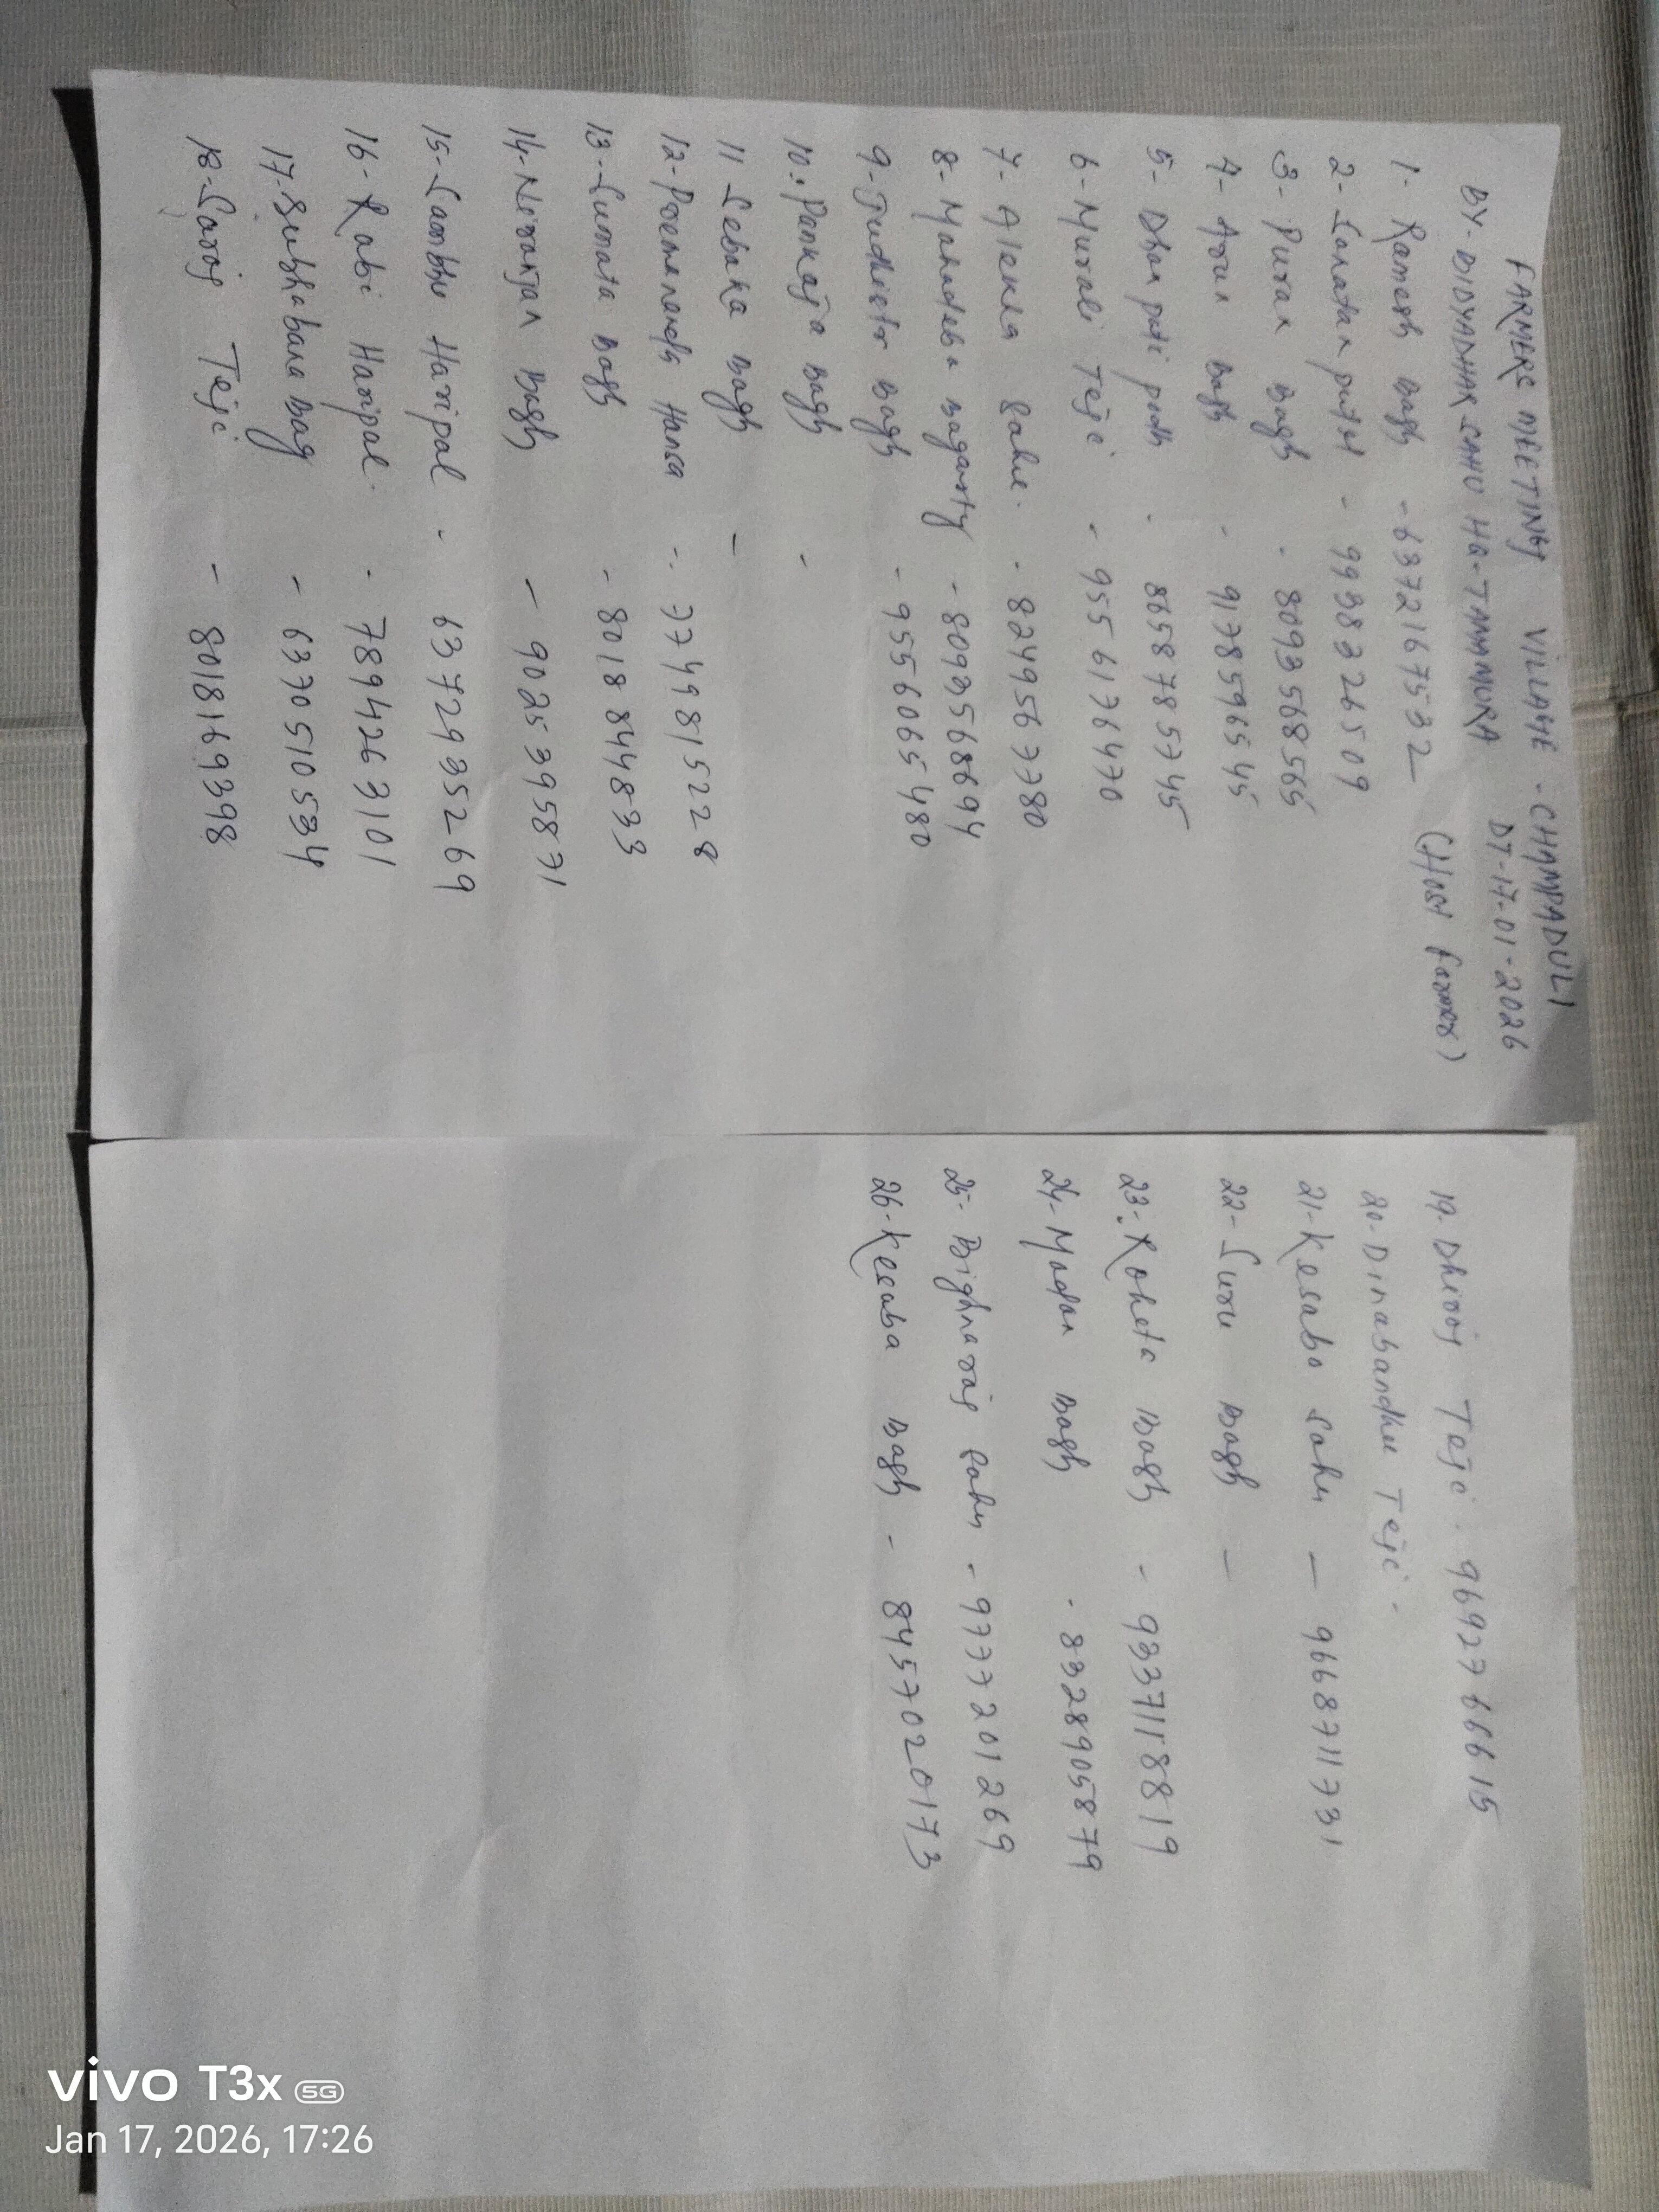 FARMERS MEETING VILLAGE - CHAMPADULI
BY- BIDYADHAR SAHU HQ-TAMAMURA DT-17-01-2026
1- Ramesh Bagh - 6372167532 (Host farmer)
2- Sanatan patel - 9938326509
3- Puran Bagh - 8093568565
4- Arun Bagh - 9178596545
5- Dhan pati podh - 8658785745
6- Murali Teji - 9556176470
7- Alekha Sahu - 8249567780
8- Mahadeba Bagarty - 8093568694
9- Judhistir Bagh - 9556065480
10- Pankaja Bagh -
11 Sebaka Bagh -
12- Premananda Hansa - 7749815228
13- Sumata Bagh - 8018844833
14- Niranjan Bagh - 9025395871
15- Sambhu Haripal - 6372935269
16- Rabi Haripal - 7894263101
17- Subhabana Bag - 6370510534
18- Saroj Teji - 8018169398
19- Dhiraj Teji - 9692766615
20- Dinabandhu Teji -
21- Kesabo Sahu - 9668711731
22- Suru Bagh -
23- Roheta Bagh - 9337118819
24- Madan Bagh - 8328905879
25- Bighnaraj Sahu - 9777201269
26- Kesaba Bagh - 8457020173
vivo T3x 5G
Jan 17, 2026, 17:26